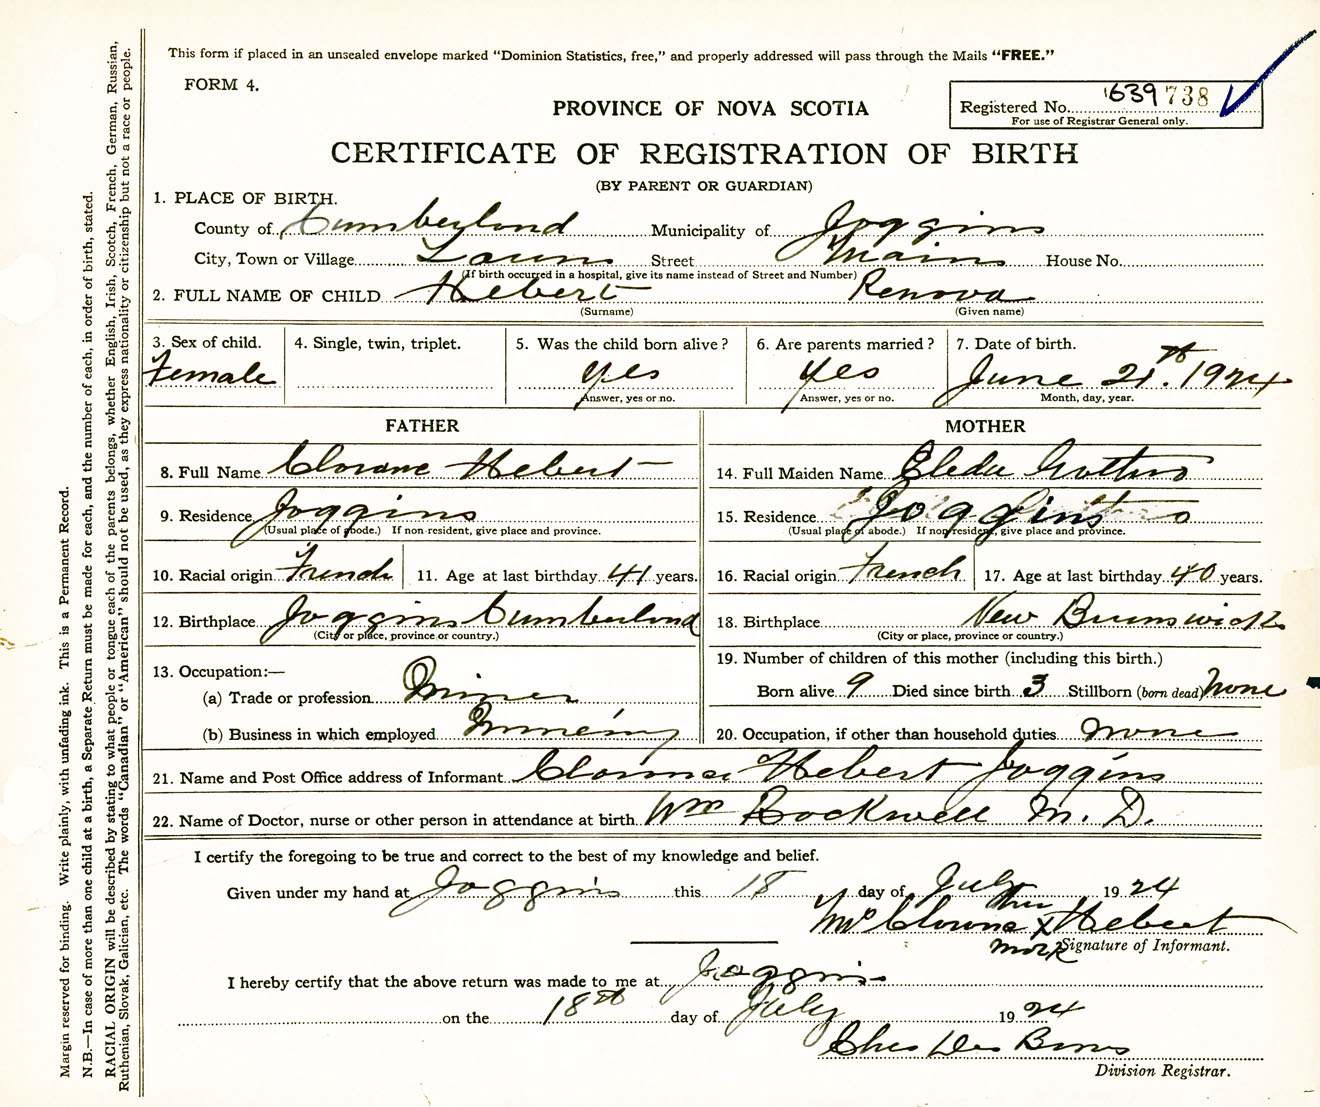 This form if placed in an unsealed envelope marked “Dominion Statistics, free,” and properly addressed will pass through the Mails “FREE.”
FORM 4.
PROVINCE OF NOVA SCOTIA
Registered No. 639 738
For use of Registrar General only.
CERTIFICATE OF REGISTRATION OF BIRTH
(BY PARENT OR GUARDIAN)
1. PLACE OF BIRTH.
County of Cumberland Municipality of Joggins
City, Town or Village Street Main House No.
(If birth occurred in a hospital, give its name instead of Street and Number)
2. FULL NAME OF CHILD Hebert Renova
(Surname) (Given name)
3. Sex of child. 4. Single, twin, triplet. 5. Was the child born alive? 6. Are parents married? 7. Date of birth.
Female yes yes June 21th. 1924
Answer, yes or no. Answer, yes or no. Month, day, year.
FATHER MOTHER
8. Full Name Hebert 14. Full Maiden Name
9. Residence Joggins 15. Residence Joggins
(Usual place of abode.) If non-resident, give place and province. (Usual place of abode.) If non-resident, give place and province.
10. Racial origin French 11. Age at last birthday 41 years. 16. Racial origin French 17. Age at last birthday 40 years.
12. Birthplace Joggins Cumberland 18. Birthplace New Brunswick
(City or place, province or country.) (City or place, province or country.)
13. Occupation:— 19. Number of children of this mother (including this birth.)
(a) Trade or profession Miner Born alive 9 Died since birth 3 Stillborn (born dead) None
(b) Business in which employed 20. Occupation, if other than household duties None
21. Name and Post Office address of Informant Hebert Joggins
22. Name of Doctor, nurse or other person in attendance at birth Wm Rockwell M. D.
I certify the foregoing to be true and correct to the best of my knowledge and belief.
Given under my hand at Joggins this 18 day of July 1924
her
Hebert X
mark Signature of Informant.
I hereby certify that the above return was made to me at Joggins
on the 18th day of July 1924
Chas
Division Registrar.
Margin reserved for binding. Write plainly, with unfading ink. This is a Permanent Record.
N.B.—In case of more than one child at a birth, a Separate Return must be made for each, and the number of each, in order of birth, stated.
RACIAL ORIGIN will be described by stating to what people or tongue each of the parents belongs, whether English, Irish, Scotch, French, German, Russian,
Ruthenian, Slovak, Galician, etc. The words “Canadian” or “American” should not be used, as they express nationality or citizenship but not a race or people.